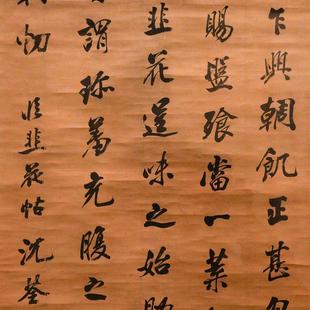 乍興輖飢正甚
賜盤飧當一葉
韭花逞味之始助
謂珍羞充腹之
切 臨韭花帖沈荃